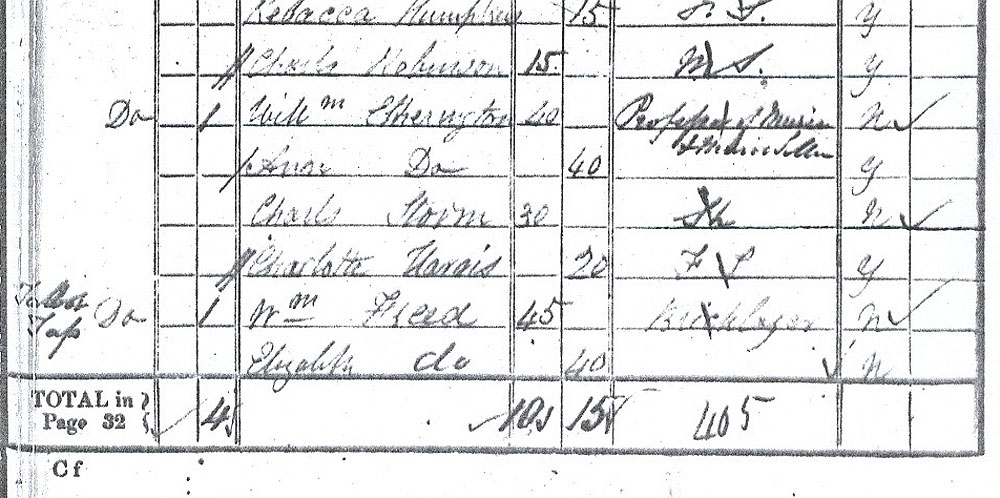 Rebacca Humphreys 15 F. S. Y
Charls Robinson 15 M S. Y
Do 1 Willm Etherington 40 Professor of Music N
& Music Seller
Ann Do 40 Y
Charls Storm 30 N
Charlotte Harris 20 F S Y
Talbot Tap Do 1 Wm Freed 45 Bricklayer N
Elizabeth do 40 N
TOTAL in Page 32 4 10 15 405
C f